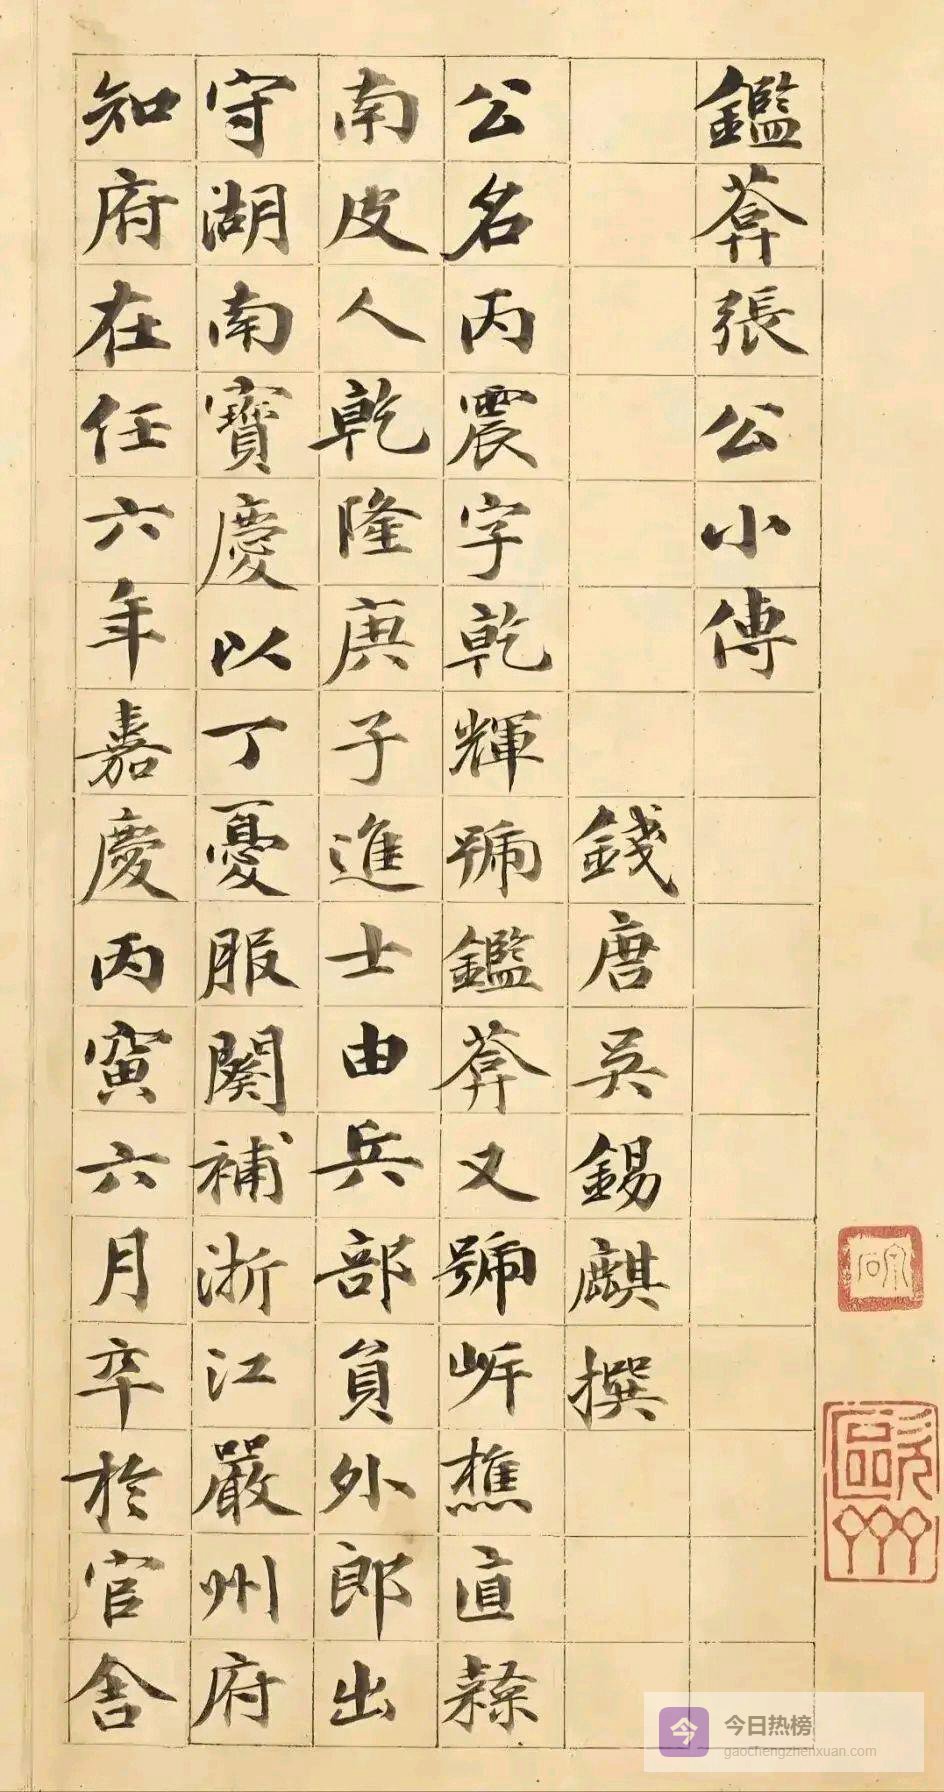 鑑葊張公小傳
錢唐吳錫麒撰
公名丙震字乾輝號鑑葊又號岍樵直隸
南皮人乾隆庚子進士由兵部員外郎出
守湖南寶慶以丁憂服闋補浙江嚴州府
知府在任六年嘉慶丙寅六月卒於官舍
今 今日热榜
gaochengzhenxuan.com